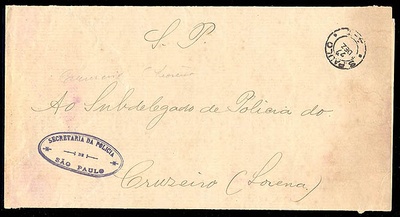 S. P.
S. PAULO
27
DEZ
Ao Subdelegado de Policia do
SECRETARIA DA POLICIA
DE
SÃO PAULO
Cruzeiro (Lorena)